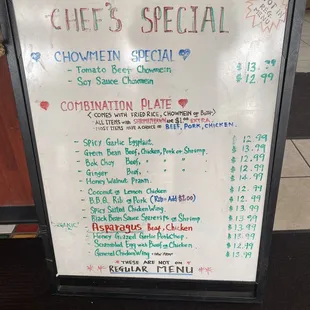 CHEF'S SPECIAL
CHOWMEIN SPECIAL
- Tomato Beef Chowmein $13.99
- Soy Sauce Chowmein $12.99
COMBINATION PLATE
(COMES WITH FRIED RICE, CHOWMEIN OR
ALL ITEMS WITH $1.00 EXTRA
MOST ITEMS HAVE A CHOICE OF BEEF, PORK, CHICKEN.
- Spicy Garlic Eggplant $12.99
- Green Bean Beef, Chicken, Pork or Shrimp $13.99
- Bok Choy Beef,
- Ginger Beef,
- Honey Walnut Prawn
- Coconut or Lemon Chicken
- B.B.Q. Rib or Pork (Rib = Add $1.00)
- Spicy Salted Chicken Wing
- Black Bean Sauce Spareribs or Shrimp
- Asparagus Beef, Chicken
- Honey Glazed Garlic Porkchop
- Scrambled Egg with Beef or Chicken
- General Chicken Wing
THESE ARE NOT ON
REGULAR MENU